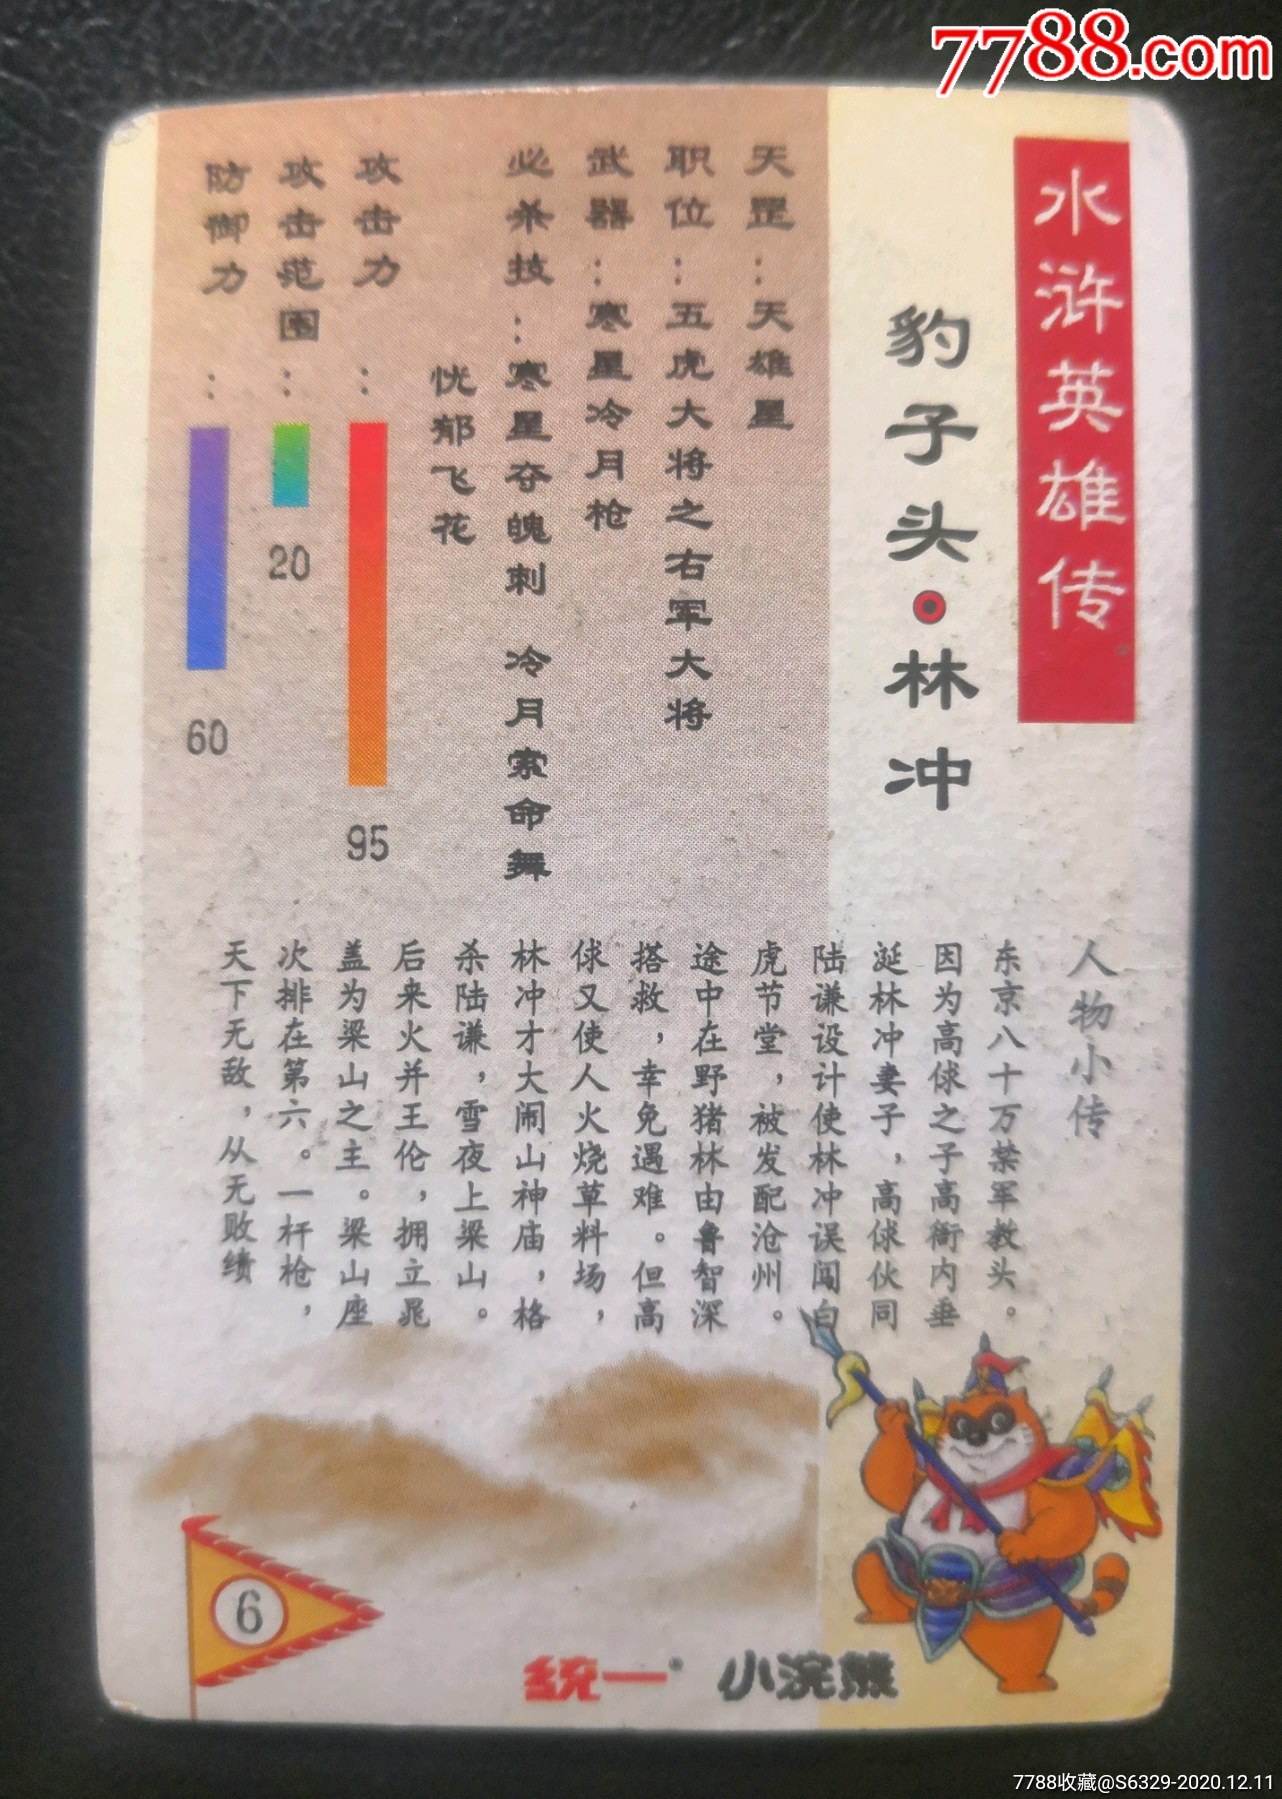 7788.com
水浒英雄传
豹子头·林冲
天罡：天雄星
职位：五虎大将之右军大将
武器：寒星冷月枪
必杀技：寒星夺魄刺 冷月索命舞
忧郁飞花
攻击力：95
攻击范围：20
防御力：60
人物小传
东京八十万禁军教头。
因为高俅之子高衙内垂
涎林冲妻子，高俅伙同
陆谦设计使林冲误闯白
虎节堂，被发配沧州。
途中在野猪林由鲁智深
搭救，幸免遇难。但高
俅又使人火烧草料场，
林冲才大闹山神庙，格
杀陆谦，雪夜上梁山。
后来火并王伦，拥立晁
盖为梁山之主。梁山座
次排在第六。一杆枪，
天下无敌，从无败绩
6
统一 小浣熊
7788收藏@S6329-2020.12.11